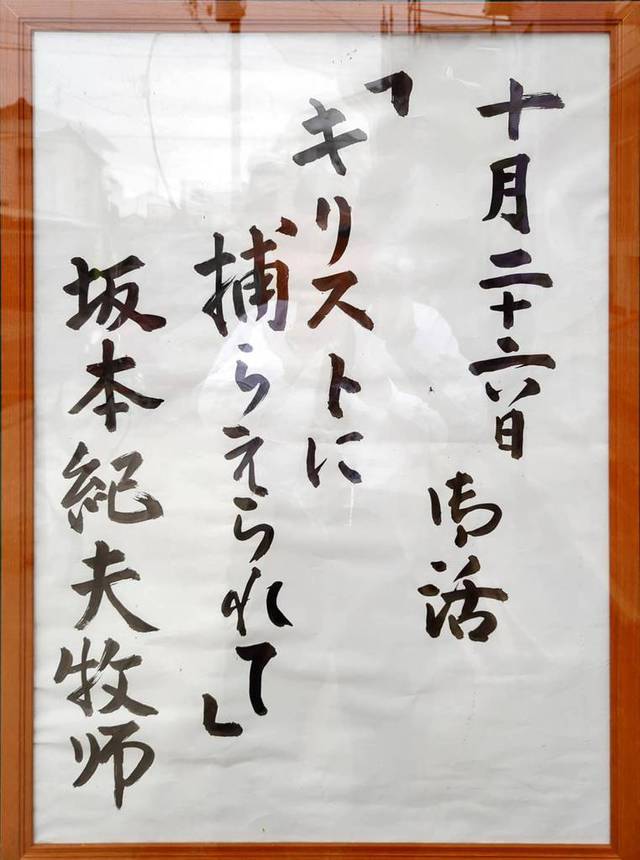 十月二十六日
御活
「キリストに
捕らえられて」
坂本紀夫牧师